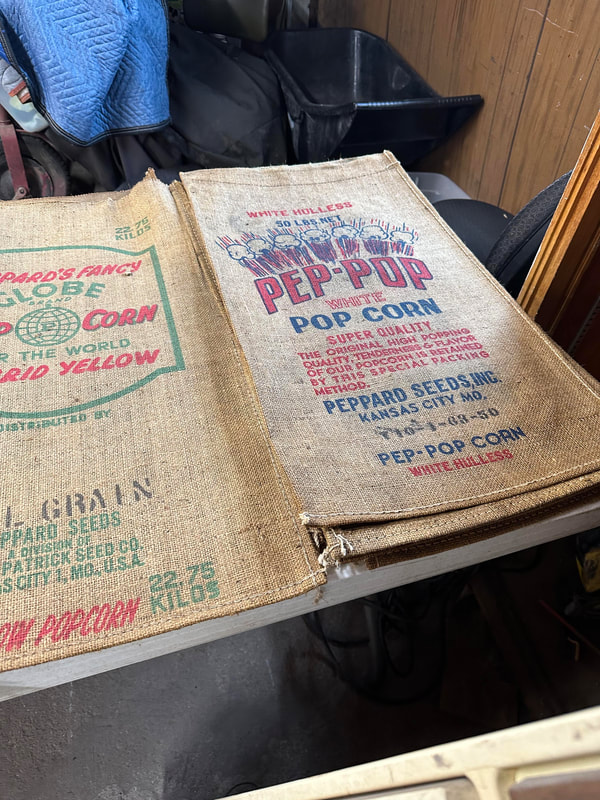 22.75
KILOS
PPARD'S FANCY
GLOBE
BRAND
P CORN
R THE WORLD
RID YELLOW
DISTRIBUTED BY
L GRAIN
PPARD SEEDS
A DIVISION OF
PATRICK SEED CO.
S CITY 1, MO. U.S.A.
22.75
KILOS
OW POPCORN
WHITE HULLESS
50 LBS. NET
PEP-POP
WHITE
POP CORN
SUPER QUALITY
THE ORIGINAL HIGH POPPING
QUALITY, TENDERNESS & FLAVOR
OF OUR POPCORN IS RETAINED
BY THIS SPECIAL PACKING
METHOD.
PEPPARD SEEDS, INC.
KANSAS CITY MO.
PEP-POP CORN
WHITE HULLESS